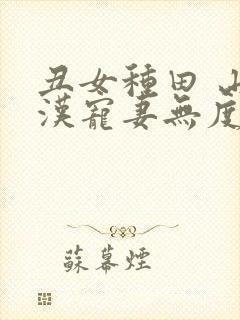 丑女種田
漢寵妻無度
蘇幕煙